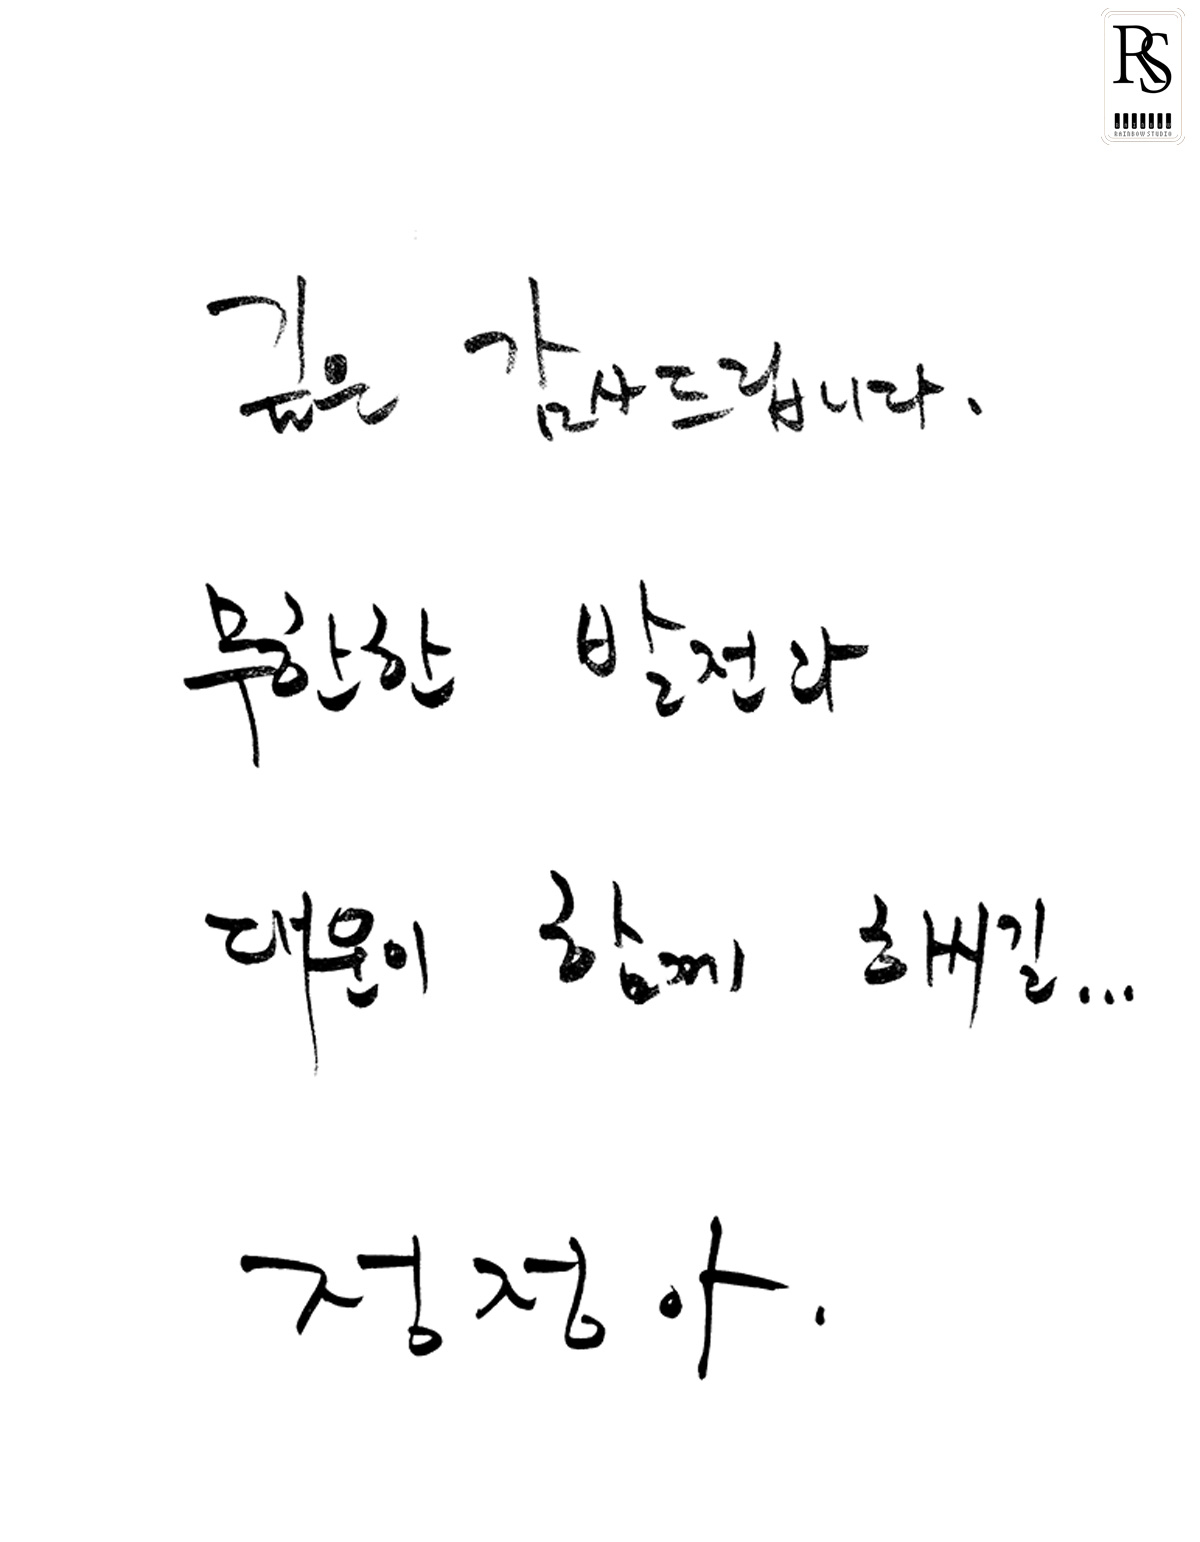 RS
RAINBOW STUDIO
깊은 감사드립니다.
무한한 발전과
대운이 함께 하시길...
정정아.